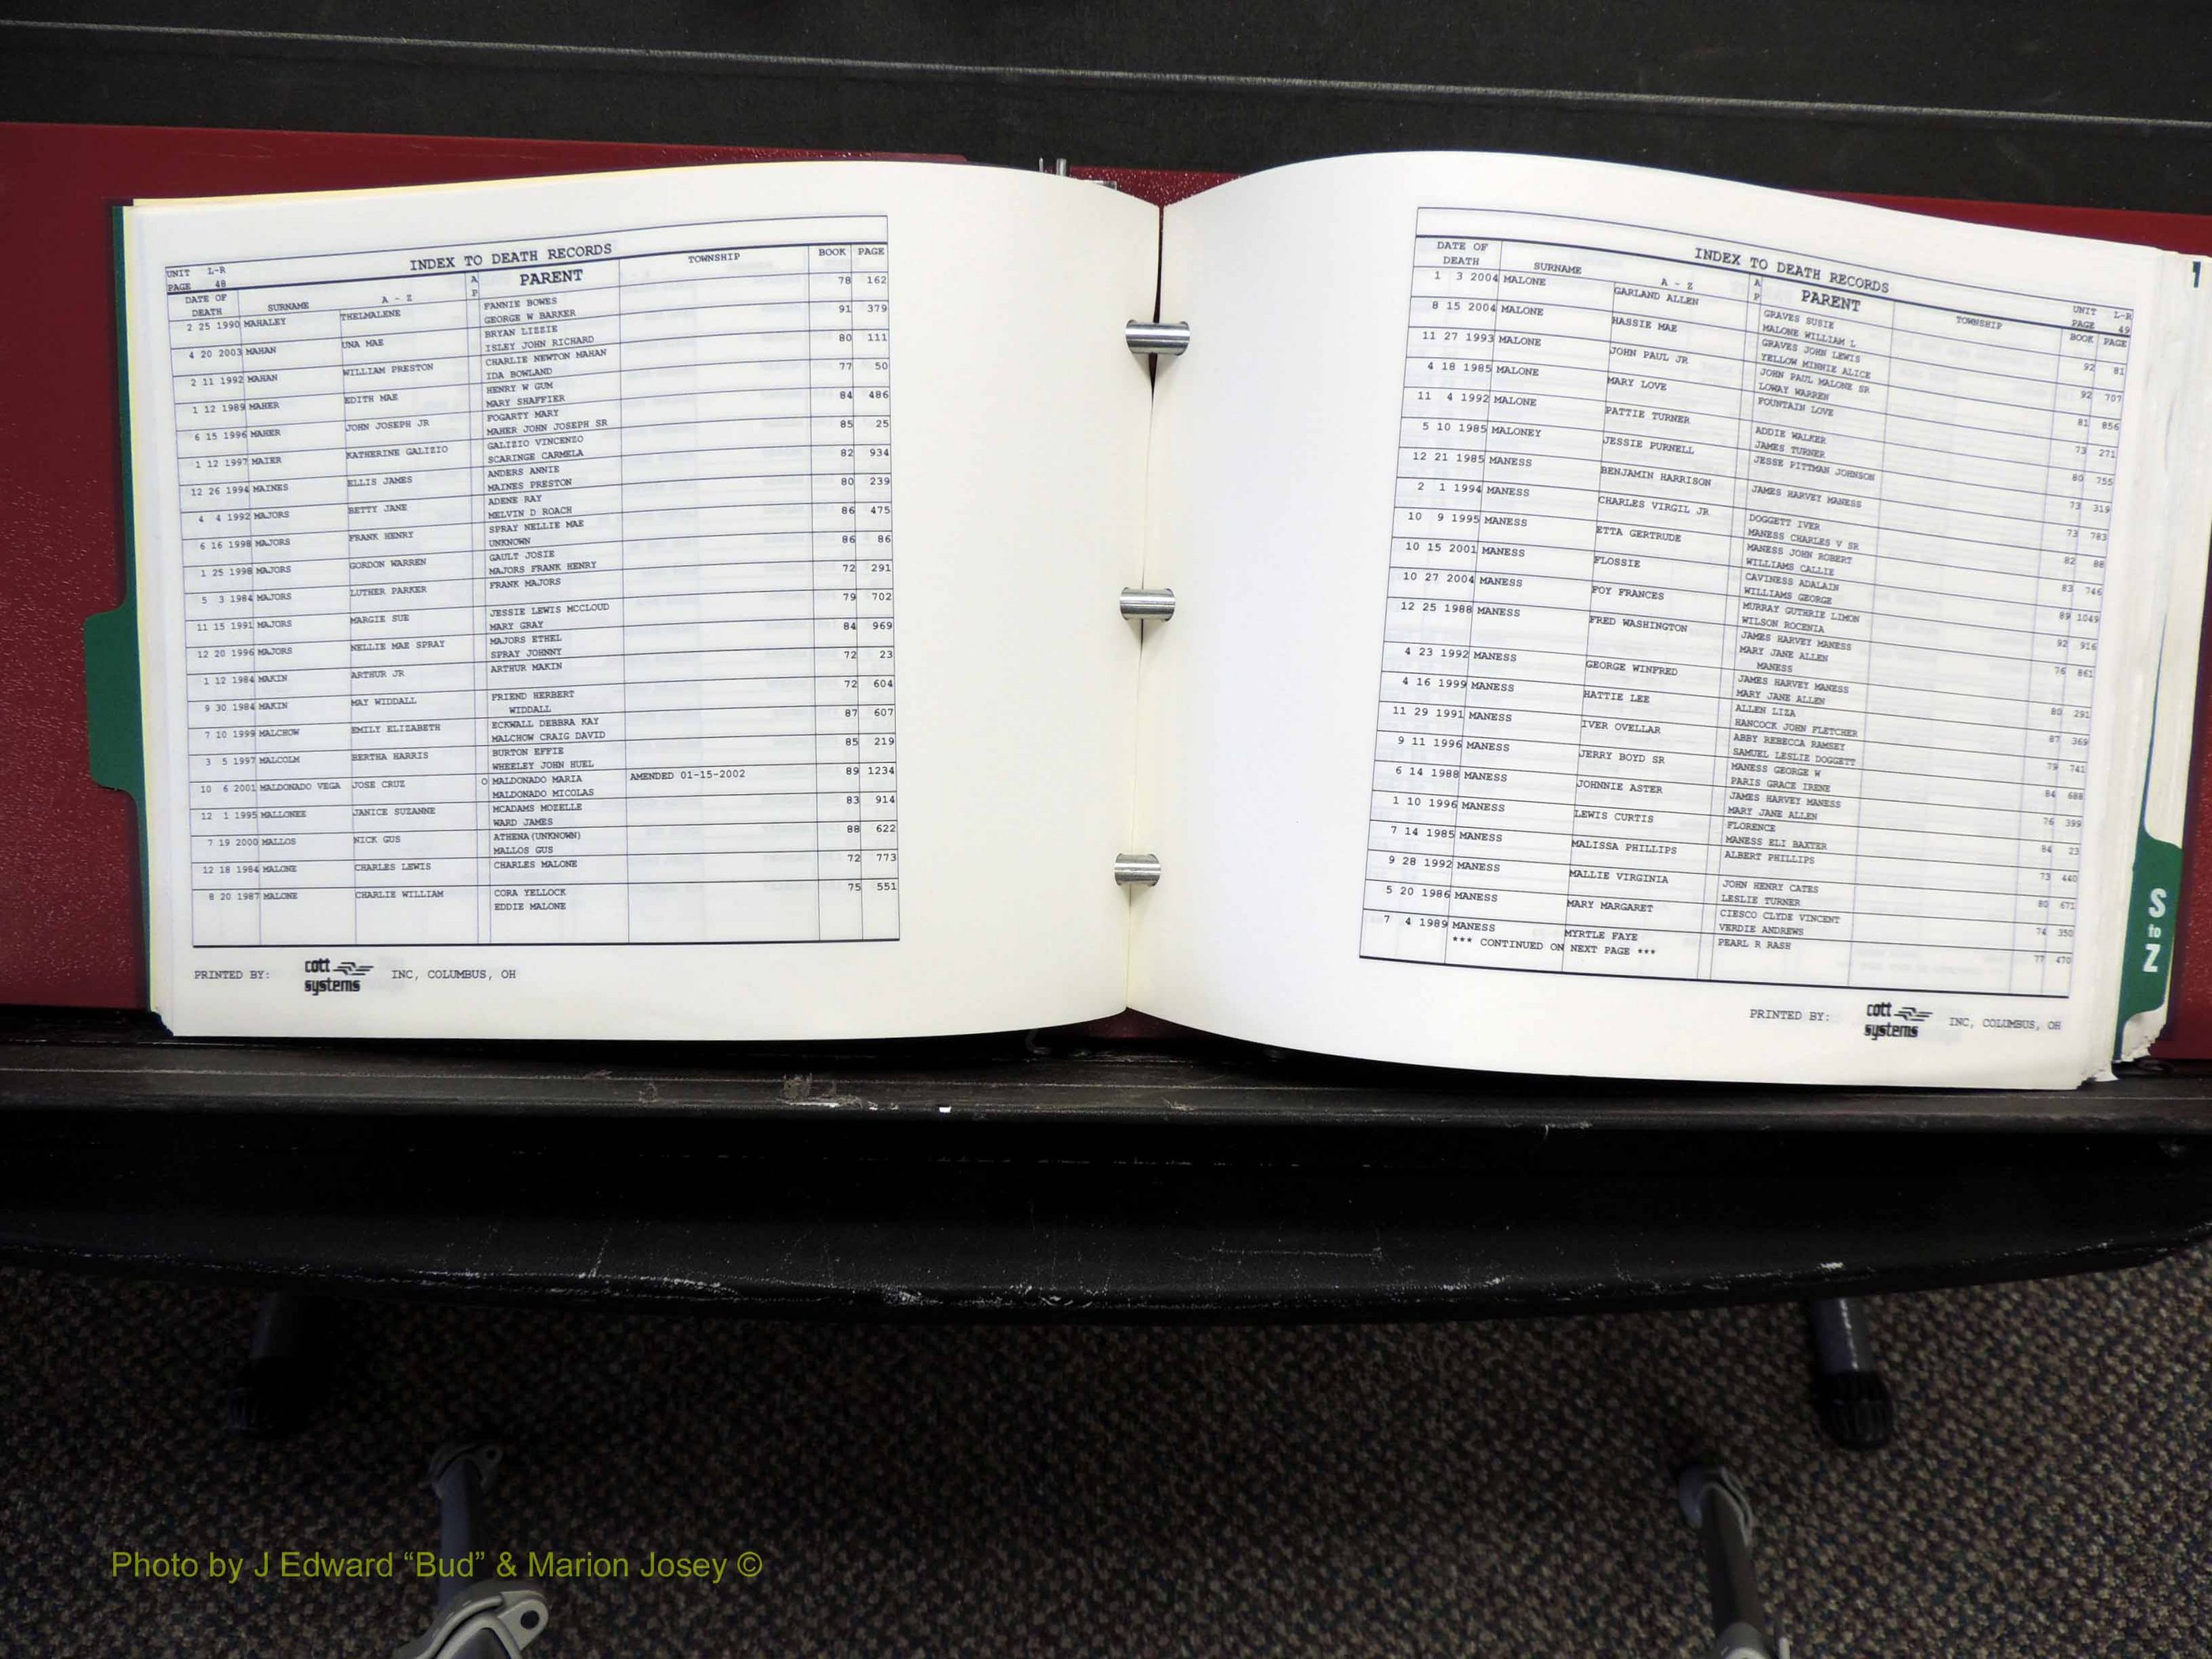 UNIT L-R
PAGE 48
INDEX TO DEATH RECORDS
DATE OF DEATH SURNAME A - Z A P PARENT TOWNSHIP BOOK PAGE
2 25 1990 MAHALEY THELMALENE FANNIE BOWES 78 162
GEORGE W BARKER
4 20 2003 MAHAN UNA MAE BRYAN LIZZIE 91 379
ISLEY JOHN RICHARD
2 11 1992 MAHAN WILLIAM PRESTON CHARLIE NEWTON MAHAN 80 111
IDA BOWLAND
1 12 1989 MAHER EDITH MAE HENRY W GUM 77 50
MARY SHAFFIER
6 15 1996 MAHER JOHN JOSEPH JR FOGARTY MARY 84 486
MAHER JOHN JOSEPH SR
1 12 1997 MAIER KATHERINE GALIZIO GALIZIO VINCENZO 85 25
SCARINGE CARMELA
12 26 1994 MAINES ELLIS JAMES ANDERS ANNIE 82 934
MAINES PRESTON
4 4 1992 MAJORS BETTY JANE ADENE RAY 80 239
MELVIN D ROACH
6 16 1998 MAJORS FRANK HENRY SPRAY NELLIE MAE 86 475
UNKNOWN
1 25 1998 MAJORS GORDON WARREN GAULT JOSIE 86 86
MAJORS FRANK HENRY
5 3 1984 MAJORS LUTHER PARKER FRANK MAJORS 72 291
11 15 1991 MAJORS MARGIE SUE JESSIE LEWIS MCCLOUD 79 702
MARY GRAY
12 20 1996 MAJORS NELLIE MAE SPRAY MAJORS ETHEL 84 969
SPRAY JOHNNY
1 12 1984 MAKIN ARTHUR JR ARTHUR MAKIN 72 23
9 30 1984 MAKIN MAY WIDDALL FRIEND HERBERT 72 604
WIDDALL
7 10 1999 MALCHOW EMILY ELIZABETH ECKWALL DEBBRA KAY 87 607
MALCHOW CRAIG DAVID
3 5 1997 MALCOLM BERTHA HARRIS BURTON EFFIE 85 219
WHEELEY JOHN HUEL
10 6 2001 MALDONADO VEGA JOSE CRUZ O MALDONADO MARIA AMENDED 01-15-2002 89 1234
MALDONADO MICOLAS
12 1 1995 MALLONEE JANICE SUZANNE MCADAMS MOZELLE 83 914
WARD JAMES
7 19 2000 MALLOS NICK GUS ATHENA (UNKNOWN) 88 622
MALLOS GUS
12 18 1984 MALONE CHARLES LEWIS CHARLES MALONE 72 773
8 20 1987 MALONE CHARLIE WILLIAM CORA YELLOCK 75 551
EDDIE MALONE
PRINTED BY: cott systems INC, COLUMBUS, OH
INDEX TO DEATH RECORDS
UNIT L-R
PAGE 49
DATE OF DEATH SURNAME A - Z A P PARENT TOWNSHIP BOOK PAGE
1 3 2004 MALONE GARLAND ALLEN GRAVES SUSIE 92 81
MALONE WILLIAM L
8 15 2004 MALONE HASSIE MAE GRAVES JOHN LEWIS 92 707
YELLOW MINNIE ALICE
11 27 1993 MALONE JOHN PAUL JR JOHN PAUL MALONE SR 81 856
LOWAY WARREN
4 18 1985 MALONE MARY LOVE FOUNTAIN LOVE 73 271
11 4 1992 MALONE PATTIE TURNER ADDIE WALKER 80 755
JAMES TURNER
5 10 1985 MALONEY JESSIE PURNELL JESSE PITTMAN JOHNSON 73 319
12 21 1985 MANESS BENJAMIN HARRISON JAMES HARVEY MANESS 73 783
2 1 1994 MANESS CHARLES VIRGIL JR DOGGETT IVER 82 88
MANESS CHARLES V SR
10 9 1995 MANESS ETTA GERTRUDE MANESS JOHN ROBERT 83 746
WILLIAMS CALLIE
10 15 2001 MANESS FLOSSIE CAVINESS ADALAIN 89 1049
WILLIAMS GEORGE
10 27 2004 MANESS FOY FRANCES MURRAY GUTHRIE LIMON 92 916
WILSON ROCENIA
12 25 1988 MANESS FRED WASHINGTON JAMES HARVEY MANESS 76 861
MARY JANE ALLEN
MANESS
4 23 1992 MANESS GEORGE WINFRED JAMES HARVEY MANESS 80 291
MARY JANE ALLEN
4 16 1999 MANESS HATTIE LEE ALLEN LIZA 87 369
HANCOCK JOHN FLETCHER
11 29 1991 MANESS IVER OVELLAR ABBY REBECCA RAMSEY 79 741
SAMUEL LESLIE DOGGETT
9 11 1996 MANESS JERRY BOYD SR MANESS GEORGE W 84 688
PARIS GRACE IRENE
6 14 1988 MANESS JOHNNIE ASTER JAMES HARVEY MANESS 76 399
MARY JANE ALLEN
1 10 1996 MANESS LEWIS CURTIS FLORENCE 84 23
MANESS ELI BAXTER
7 14 1985 MANESS MALISSA PHILLIPS ALBERT PHILLIPS 73 440
9 28 1992 MANESS MALLIE VIRGINIA JOHN HENRY CATES 80 671
LESLIE TURNER
5 20 1986 MANESS MARY MARGARET CIESCO CLYDE VINCENT 74 350
VERDIE ANDREWS
7 4 1989 MANESS MYRTLE FAYE PEARL R RASH 77 470
*** CONTINUED ON NEXT PAGE ***
PRINTED BY: cott systems INC, COLUMBUS, OH
S
to
Z
Photo by J Edward “Bud” & Marion Josey ©